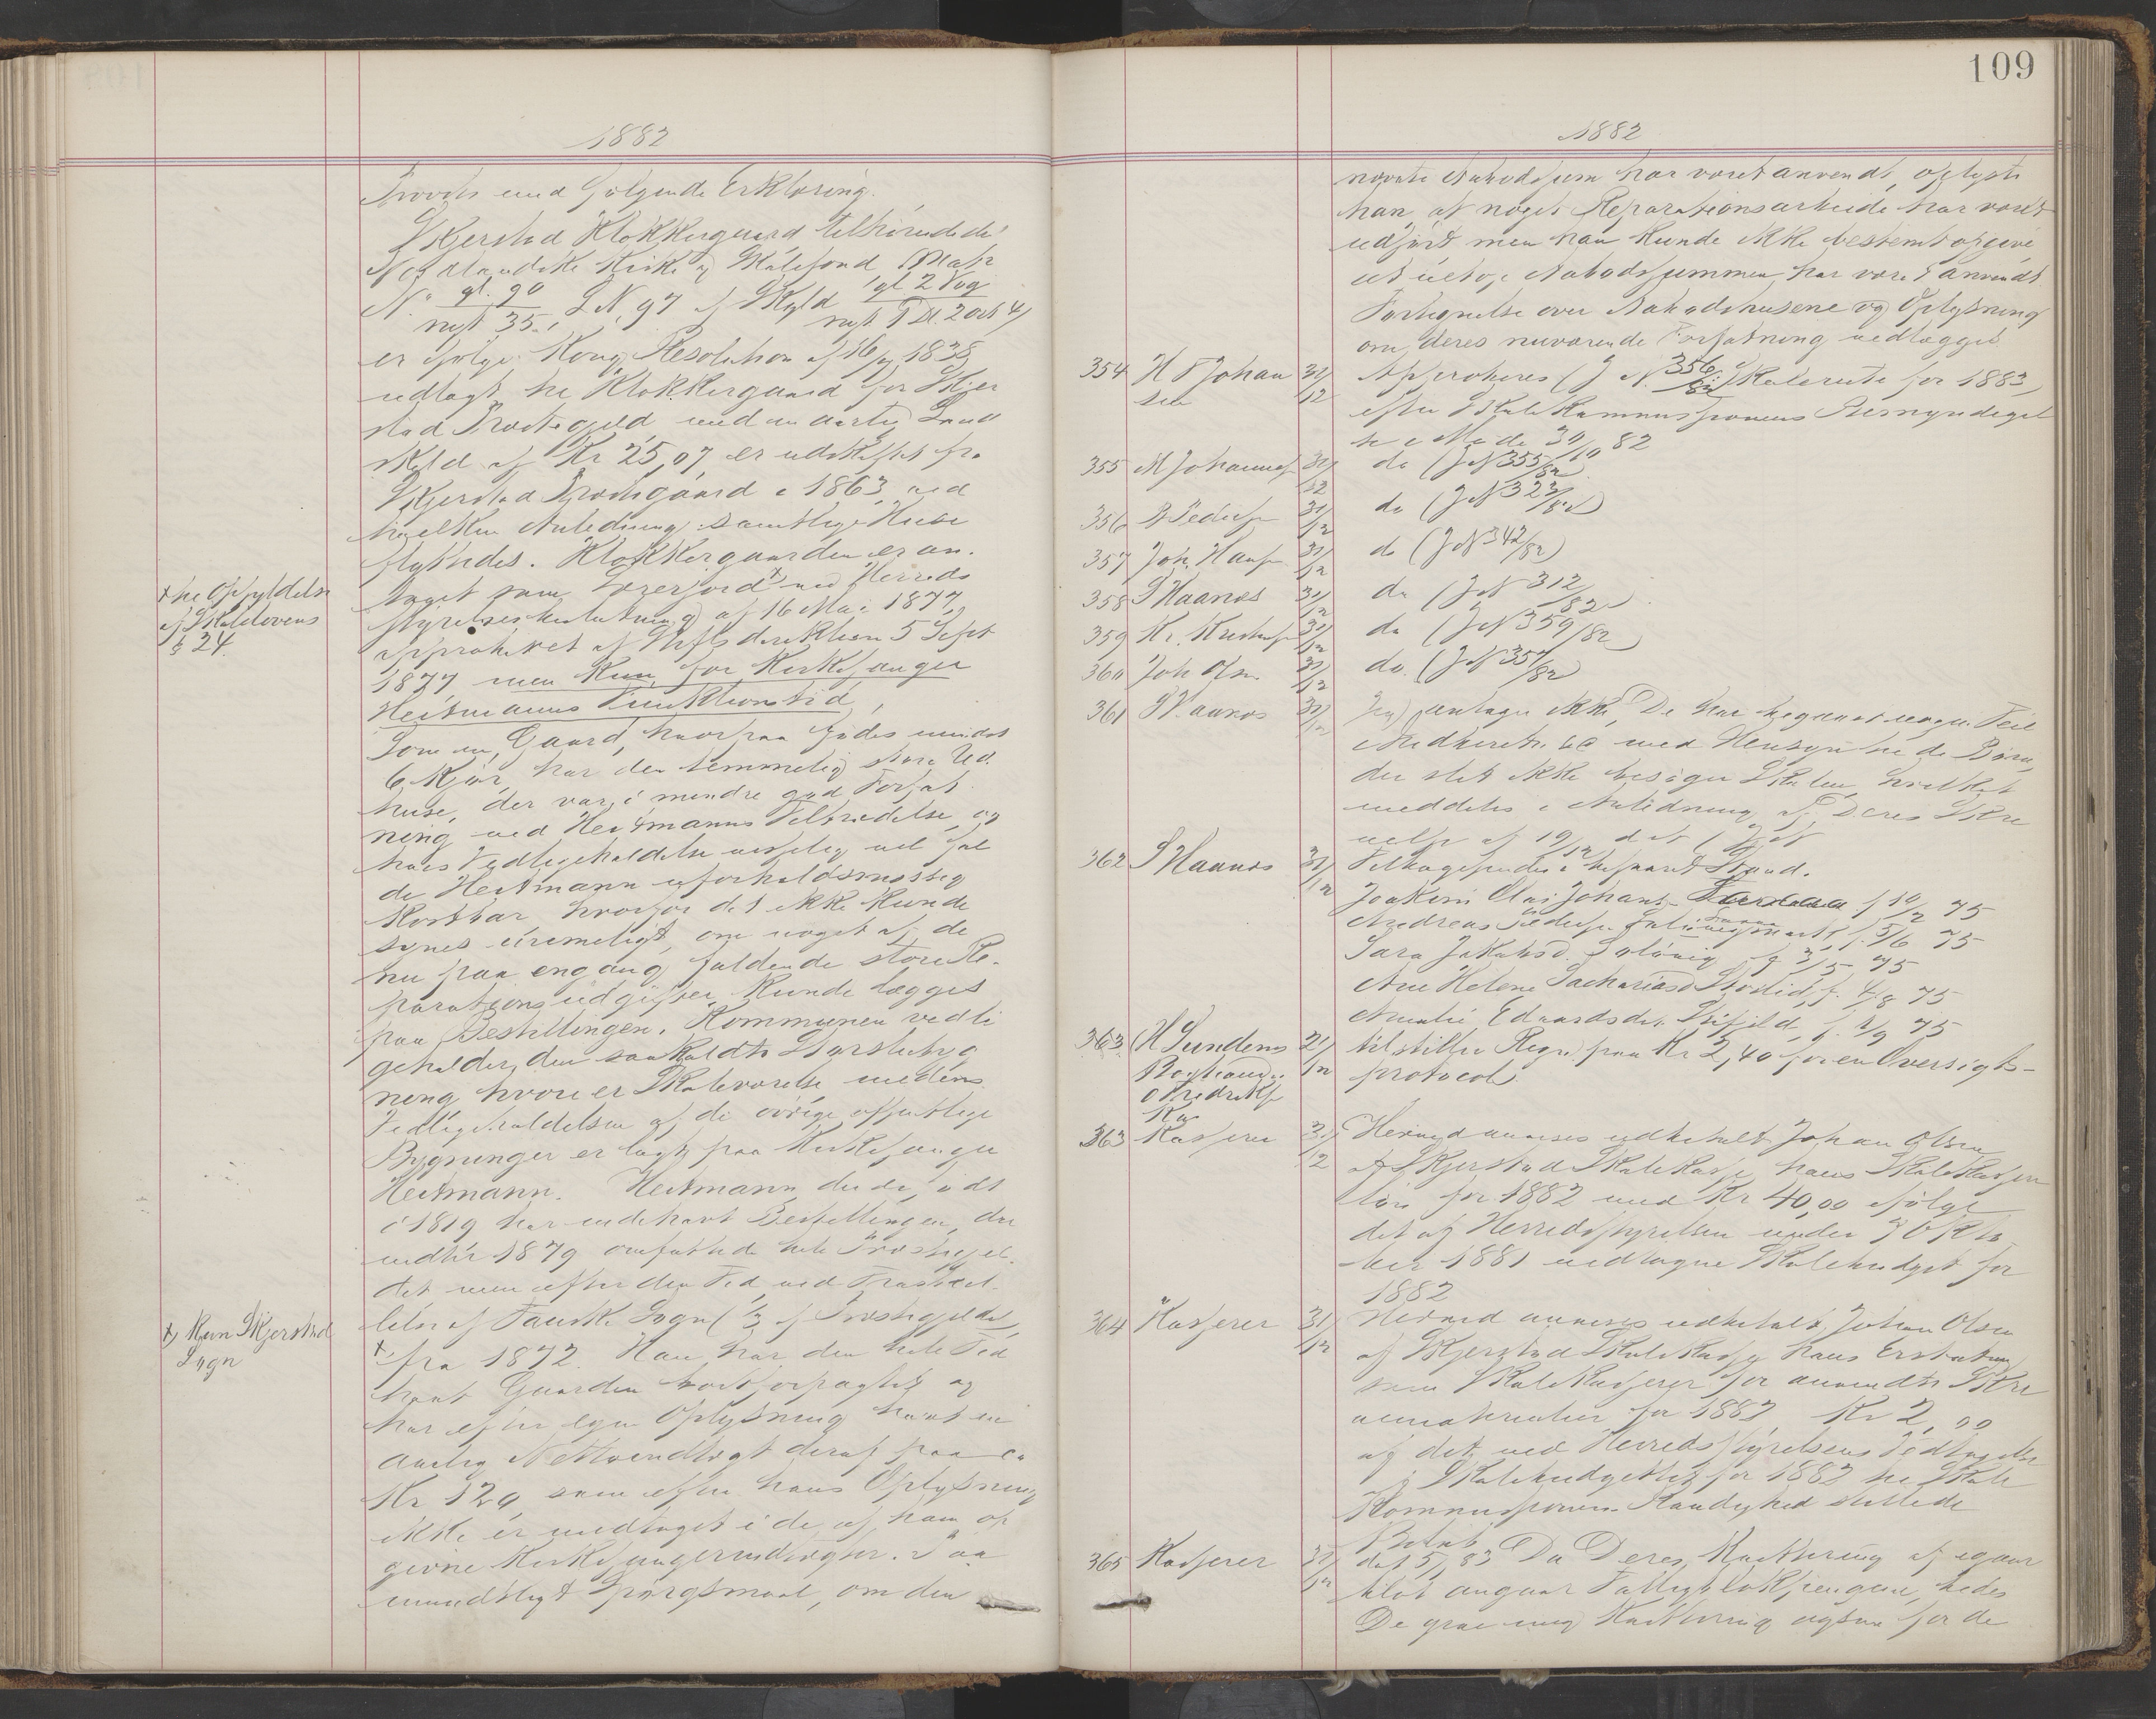 109
1882
Provsti med følgende Erklæring.
Skjerstad Klokkergaard tilhørende det
Nordlandske Kirke og Skolefond Matr
N. gl. 90 / nyt 35., LN 97 af Skyld gl 2 Vog / nyt 7 Dl. 2 ort 4
er ifølge Kong. Resolution af 1838
udlagt til Klokkergaard for Skjer
stad Præstegjeld med en aarlig Land
skyld af Kr 25,07, er udskiftet fra
Skjerstad Præstegaard i 1863, ved
hvilken Anledning samtlige Huse
flyttedes. Klokkergaarden er an.
taget som Lærerjord x ved Herreds
styrelsesbeslutning af 16 Mai 1877,
approberet af Stiftsdirektionen 5 Sept
1877 men kun for Kirkesanger
Heitmanns Funktionstid,
x til Opfyldelse
af Skolelovens
§ 24.
Som en Gaard, hvorpaa fødes mindst
6 Kjør, har den temmelig store Ud.
huse, der var i mindre god Forfat
ning ved Heitmanns Tiltrædelse, og
hvis Vedligeholdelse visselig vil fal
de Heitmann uforholdsmæssig
kostbar, hvorfor det ikke kunde
synes urimeligt, om noget af de
nu paa engang faldende store Re.
parationsudgifter kunde lægges
paa Bestillingen. Kommunen vedli
geholder den saakaldte Storstubyg
ning, hvori er Skoleværelse, medens
Vedligeholdelsen af de øvrige offentlige
Bygninger er lagt paa Kirkesanger
Heitmann. Heitmann, der er født
i 1819 har indehavt Bestillingen, der
indtil 1879 omfattede hele Præstegjel.
det men efter den Tid, ved Fraskil
lelse af Fauske Sogn (1/3 af Præstegjeldet,
x fra 1872. Han har den hele Tid
x) Kun Skjerstad
Sogn
havt Gaarden bortforpagtet og
har efter egen Oplysning havt en
aarlig Nettoindtægt deraf paa ca
Kr 120, som efter hans Oplysning
ikke er medtaget i de af ham op
givne Kirkesangerindtægter. Paa
mundtligt Spørgsmaal, om den
1882
nævnte Aabodssum har været anvendt, oplyste
han, at noget Reparationsarbeide har været
udført men han kunde ikke bestemt opgive
Aabodssummen har været anvendt
Fortegnelse over Aabodshusene og Oplysning
om deres nuværende Forfatning vedlægges
354 H P Johan
sen 31/12 Approberes (J N 356/82) Skoleruter for 1883,
efter Skolekommissionens Bemyndigel
se i Møde 30/10 82
355 M Johannes 31/12 do (J N 355/82)
356 P Peders 31/12 do (J N 323/82)
357 Joh. Hans 31/12 do (J N 342/82)
358 S Haanæs 31/12 do (J N 312/82)
359 Kr. Kristens 31/12 do (J N 359/82)
360 Joh Olsn 31/12 do. (J N 357/82)
361 S Haanæs 31/12 Jeg antager ikke, De har begaaet nogen Feil
Indberetn. &c med Hensyn til de Børn,
der slet ikke besøger Skolen, hvilket
meddeles i Anledning af Deres Skri
velse af 19/12 dat
362 S Haanæs 31/12 Tilbagesendes i besvaret Stand.
Joakim Olai Johans f 10/2 75
Andreas Peders f. 5/6 75
Sara Jakobsd. Solvuig f 3/5 75
Ane Helene Sachariasd f. 4/8 75
Amalie Edvardsd. f. 2/9 75
363 H Sundems
Boghand.
31/12 tilstilles Regn. paa Kr 2,40 for en Oversigts-
protocol.
363 Kasserer 31/12 Hermed anvises udbetalt Johan Olsen
af Skjerstad Skolekasse hans Skolekasserer
løn for 1882 med Kr 40,00 ifølge
det af Herredsstyrelsen under Okto
ber 1881 vedtagne Skolebudget for
1882
364 Kasserer 31/12 Hermed anvises udbetalt Johan Olsen
af Skjerstad Skolekasse hans Erstatning
som Skolekasserer for anvendte Skri
vematerialier for 1882 Kr 2,00
af det ved Herredsstyrelsens Vedtagelse
i Skolebudgettet for 1882 til Skole
kommissionens Raadighed stillede
Beløb
365 Kasserer 31/12 Da Deres Kvittering af igaar
blot angaar Fattigblokpengene, bedes
De give mig Kvittering ogsaa for de